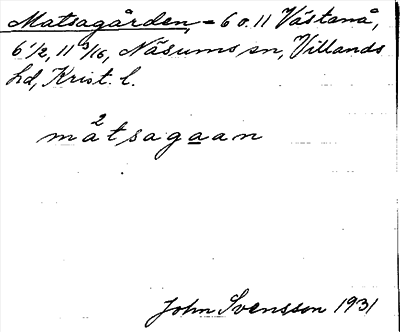 Matsagården, = 6 o. 11 Västanå,
6 1/2, 11 9/16, Näsums sn, Villands
hd, Krist. l.
2
måtsagaan
John Svensson 1931